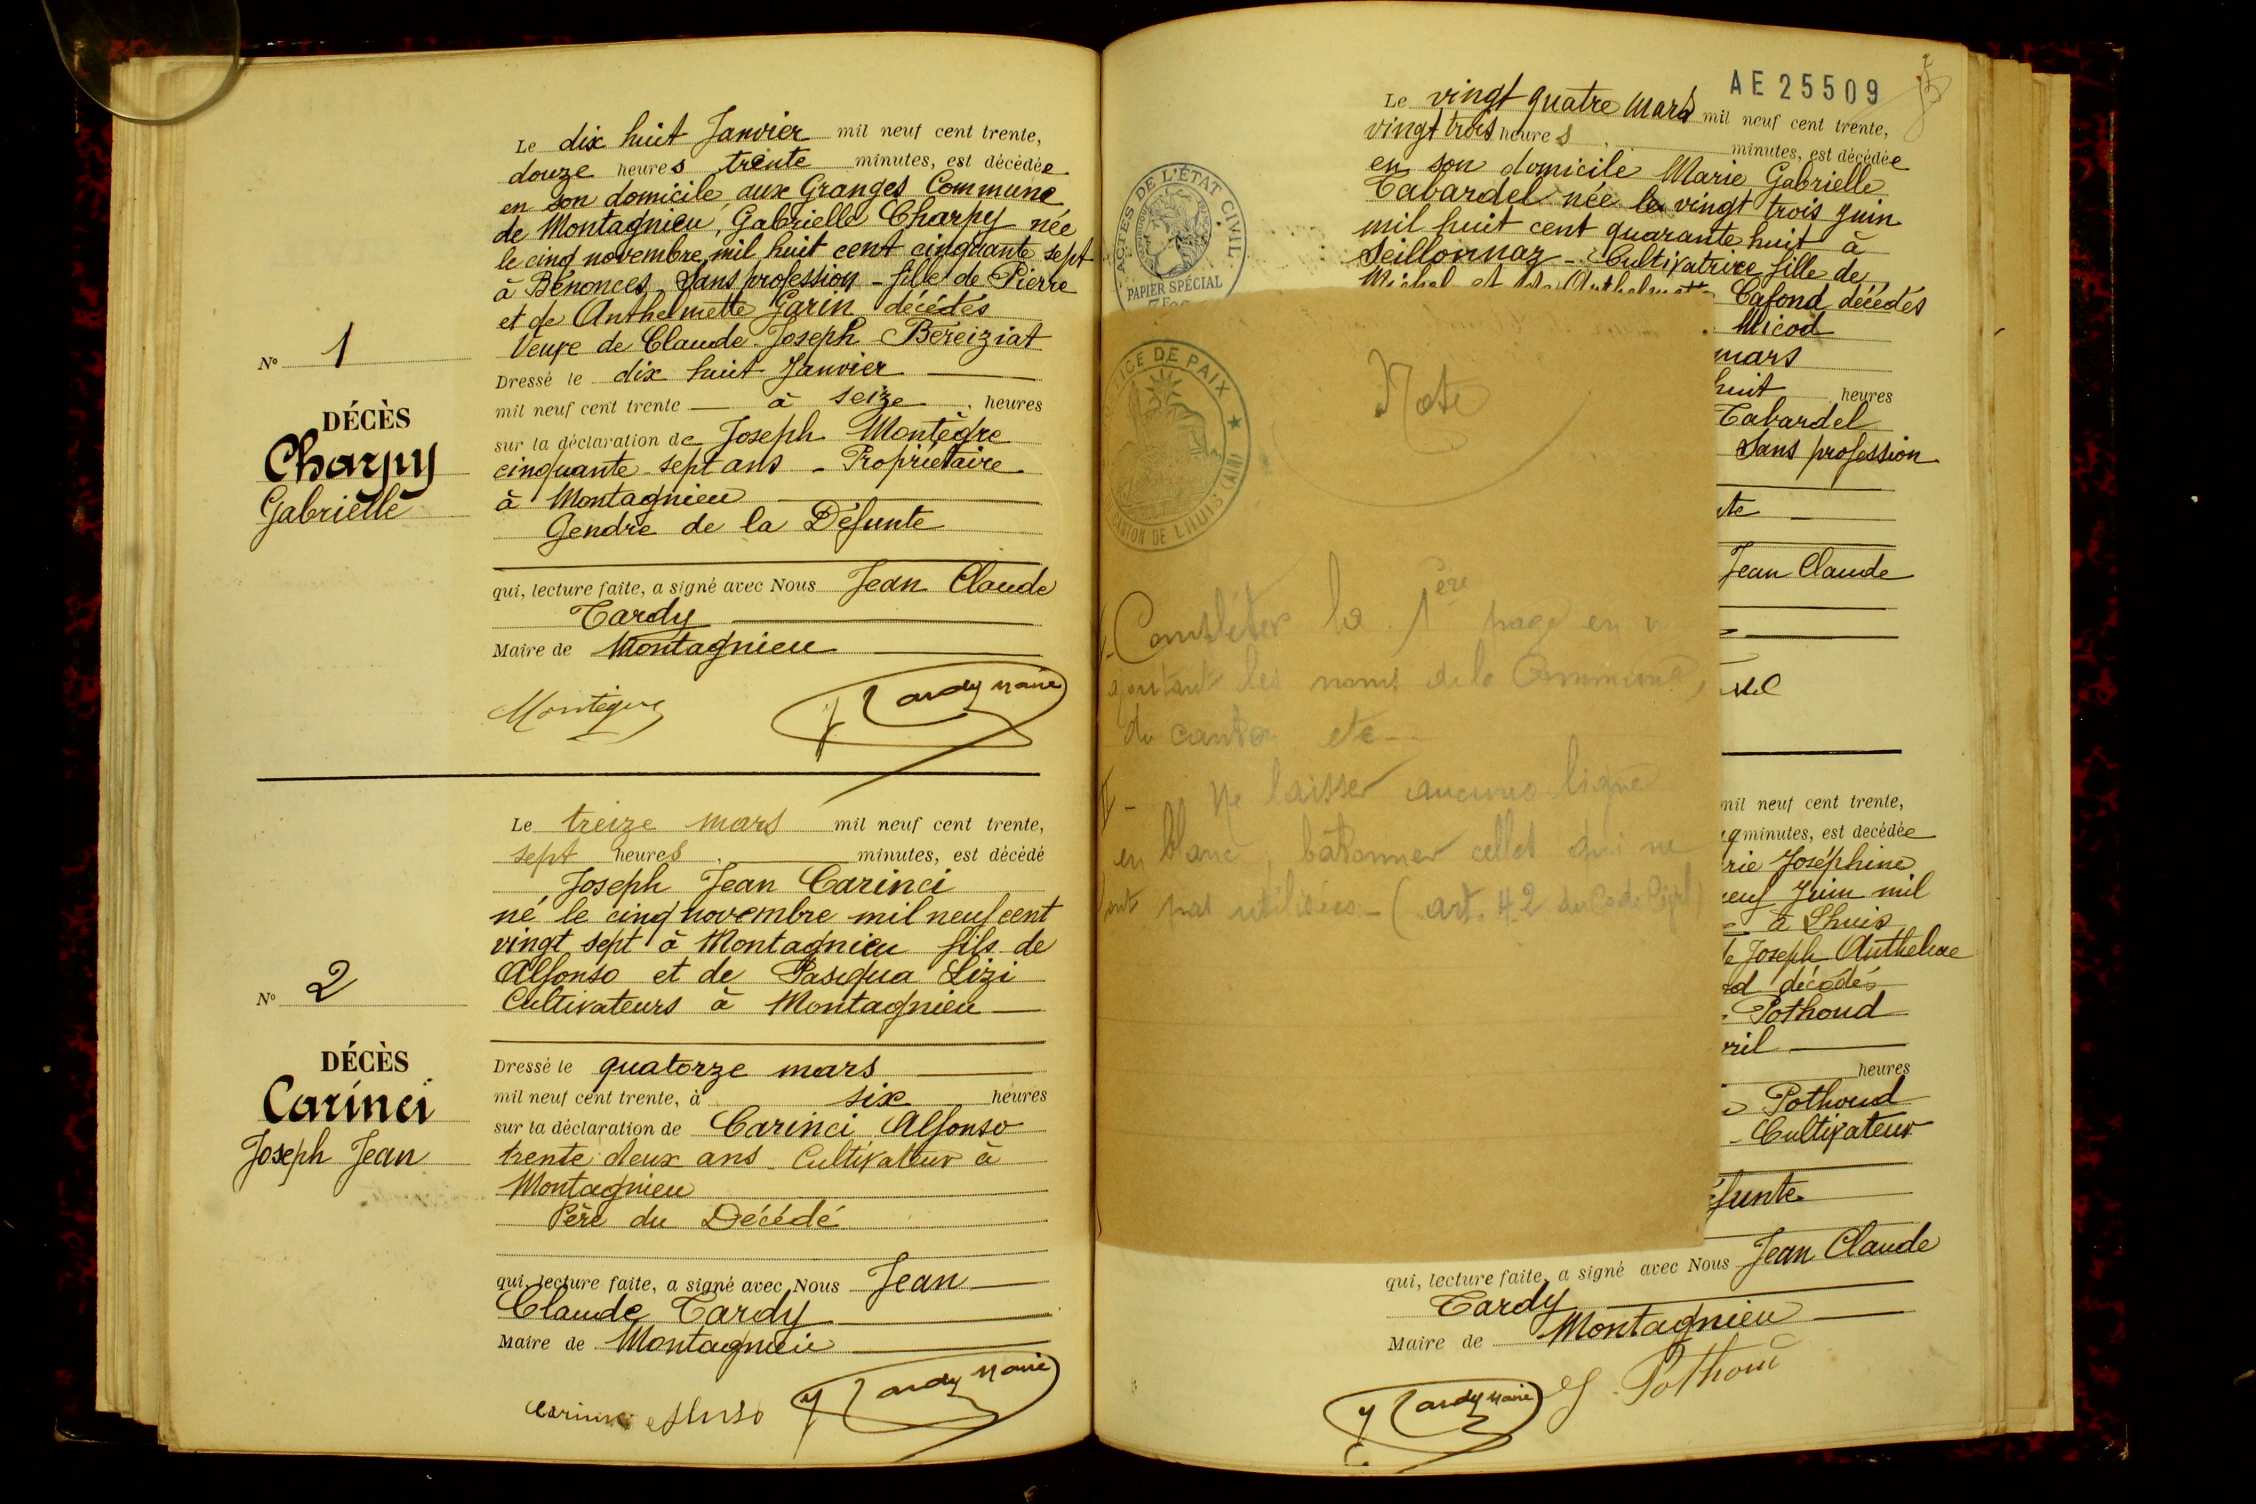 Le dix huit Janvier mil neuf cent trente,
douze heures trente minutes, est décédée
en son domicile aux Granges Commune
de Montagnieu, Gabrielle Charpy née
le cinq novembre mil huit cent cinquante sept
à Bénonces Sans profession - fille de Pierre
et de Anthelmette Garin décédés
Veuve de Claude Joseph Béreiziat
Dressé le dix huit Janvier
mil neuf cent trente à seize heures
sur la déclaration de Joseph Montègre
cinquante sept ans - Propriétaire
à Montagnieu
Gendre de la Défunte
qui, lecture faite, a signé avec Nous Jean Claude
Tardy
Maire de Montagnieu
Tardy Maire
N° 1
DÉCÈS
Charpy
Gabrielle
Le treize mars mil neuf cent trente,
sept heures minutes, est décédé
Joseph Jean Carinci
né le cinq novembre mil neuf cent
vingt sept à Montagnieu fils de
Alfonso et de Pasqua Lizi
Cultivateurs à Montagnieu
Dressé le quatorze mars
mil neuf cent trente, à six heures
sur la déclaration de Carinci Alfonso
trente deux ans - Cultivateur à
Montagnieu
Père du Décédé
qui, lecture faite, a signé avec Nous Jean
Claude Tardy
Maire de Montagnieu
Tardy Maire
N° 2
DÉCÈS
Carinci
Joseph Jean
AE 25509
Le vingt quatre mars mil neuf cent trente,
vingt trois heures minutes, est décédée
en son domicile Marie Gabrielle
Tabardel née le vingt trois juin
mil huit cent quarante huit à
Seillonnaz - Cultivatrice fille de
Michel et de Cafond décédés
Micod
mars
huit heures
Tabardel
Sans profession
Jean Claude
ACTES DE L'ÉTAT CIVIL
PAPIER SPÉCIAL
DE PAIX
CANTON DE LHUIS (AIN)
Note
I - Compléter la 1ère page en
ajoutant les noms de la Commune,
du canton etc
II - Ne laisser aucune ligne
en blanc, bâtonner celles qui ne
sont pas utilisées - (art. 42 du Code Civil)
mil neuf cent trente,
minutes, est décédée
Joséphine
Juin mil
à Lhuis
Joseph Anthelme
décédés
Pothoud
heures
Pothoud
Cultivateur
qui, lecture faite, a signé avec Nous Jean Claude
Tardy
Maire de Montagnieu
Tardy Maire